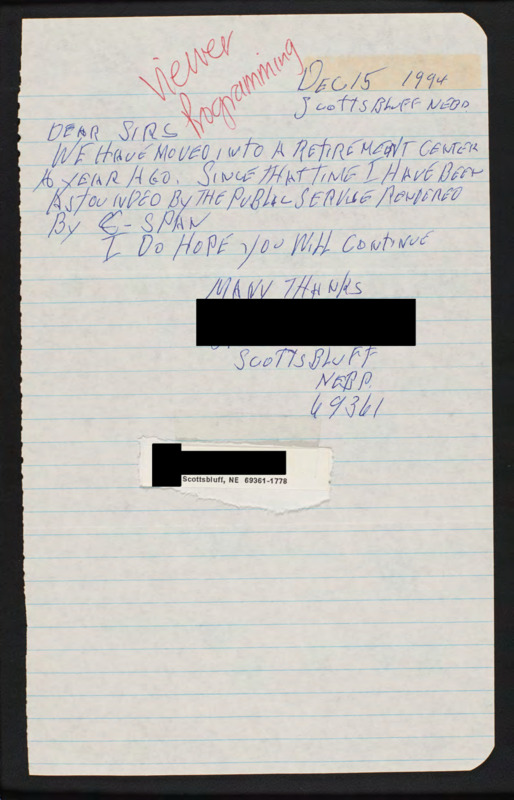 Viewer
Programming
DEC 15 1994
SCOTTSBLUFF NEBR
DEAR SIRS
WE HAVE MOVED INTO A RETIREMENT CENTER
YEAR AGO. SINCE THAT TIME I HAVE BEEN
ASTOUNDED BY THE PUBLIC SERVICE RENDERED
BY C-SPAN
I DO HOPE YOU WILL CONTINUE
MANY THANKS
SCOTTSBLUFF
NEBR.
69361
Scottsbluff, NE 69361-1778